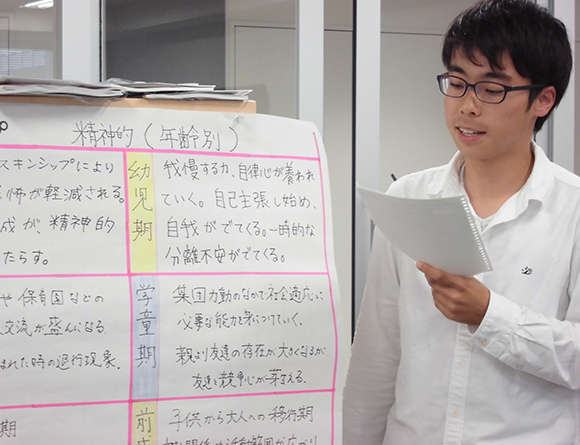 精神的（年齢別）
スキンシップにより
怖が軽減される。
成が、精神的
たらす。
幼児期
我慢する力、自律心が養われ
ていく。自己主張し始め、
自我がでてくる。一時的な
分離不安がでてくる。
や保育園などの
交流が盛んになる
まれた時の退行現象。
学童期
集団力動のなかで社会適応に
必要な能力を身につけていく。
親より友達の存在が大きくなるが、
友達と競争心が芽生える。
期
前
子供から大人への移行期